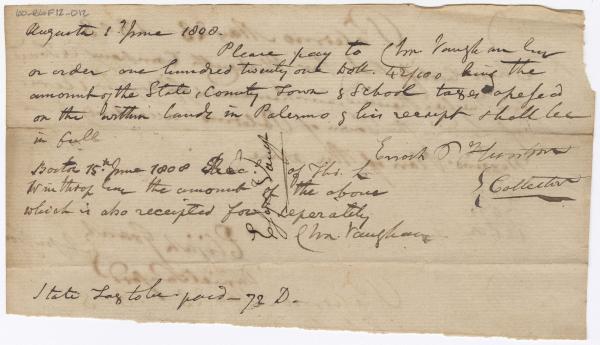 60-BGF12-012
Augusta 1st June 1808.
Please pay to Chs. Vaughan
or order one hundred twenty one Doll. 42/100 being the
amount of the State, County Town & School taxes assessed
on the within lands in Palermo & his receipt shall be
in full
Enoch P.
Collector
Boston 15th June 1808 Recd of Thos. L
Winthrop the amount of the above
which is also receipted for seperately
Chs. Vaughan
State Tax to be paid - 72 D.